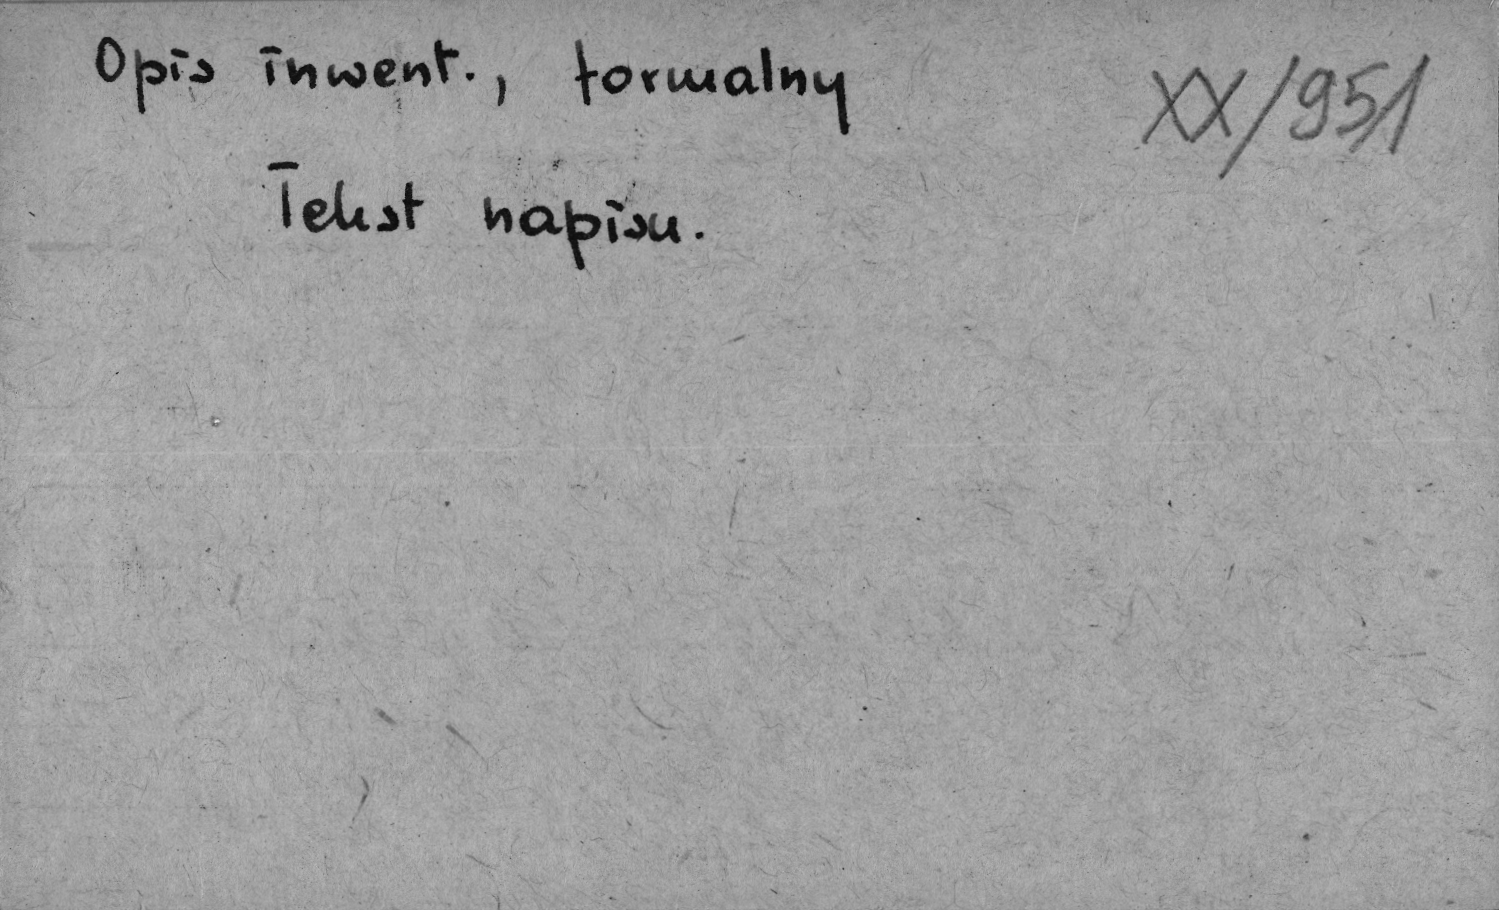 Opis inwent., formalny
XX/951
Tekst napisu.